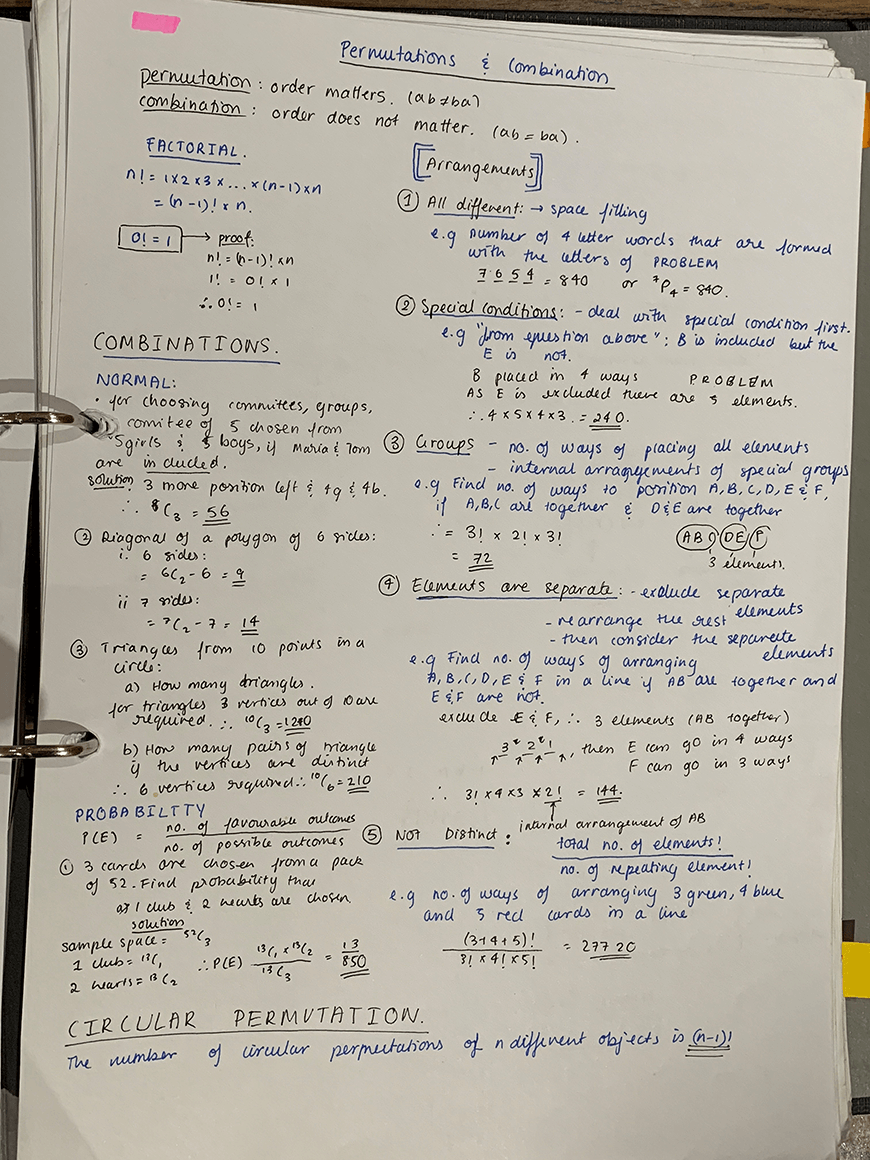 Permutations & Combination
permutation: order matters. (ab≠ba)
combination: order does not matter. (ab = ba).
FACTORIAL.
n! = 1 x 2 x 3 x ... x (n-1) x n
= (n-1)! x n.
0! = 1 → proof:
n! = (n-1)! x n
1! = 0! x 1
∴ 0! = 1
COMBINATIONS.
NORMAL:
• for choosing committees, groups,
comitee of 5 chosen from
5 girls & 5 boys, if Maria & Tom
are included.
solution: 3 more position left & 4g & 4b.
∴ ⁸C₃ = 56
② Diagonal of a polygon of 6 sides:
i. 6 sides:
= 6C₂ - 6 = 9
ii 7 sides:
= ⁷C₂ - 7 = 14
③ Triangles from 10 points in a
circle:
a) How many triangles.
for triangles 3 vertices out of 10 are
required. ∴ ¹⁰C₃ = 1240
b) How many pairs of triangle
if the vertices are distinct
∴ 6 vertices required ∴ ¹⁰C₆ = 210
PROBABILTTY
P(E) = no. of favourable outcomes
no. of possible outcomes
① 3 cards are chosen from a pack
of 52. Find probability that
a) 1 club & 2 hearts are chosen.
solution
sample space = ⁵²C₃
1 club = ¹³C₁
2 hearts = ¹³C₂
∴ P(E) ¹³C₁ x ¹³C₂ = 13
¹³C₃ 850
[Arrangements]
① All different: → space filling
e.g number of 4 letter words that are formed
with the letters of PROBLEM
7 6 5 4 = 840 or ⁷P₄ = 840.
② Special conditions: - deal with special condition first.
e.g "from question above": B is included but the
E is not.
B placed in 4 ways PROBLEM
AS E is excluded there are 5 elements.
∴ 4 x 5 x 4 x 3 . = 240.
③ Groups - no. of ways of placing all elements
- internal arrangyements of special groups
e.g Find no. of ways to position A, B, C, D, E & F,
if A, B, C are together & D & E are together
∴ = 3! x 2! x 3!
= 72
ABC DE F
3 elements.
④ Elements are separate: - exclude separate
elements
- rearrange the rest
- then consider the separate
elements
e.g Find no. of ways of arranging
A, B, C, D, E & F in a line if AB are together and
E & F are not.
exclude E & F, ∴ 3 elements (AB together)
↑ 3 ↑ 2 ↑ 1 ↑, then E can go in 4 ways
F can go in 3 ways
∴ 3! x 4 x 3 x 2! = 144.
internal arrangement of AB
⑤ NOT Distinct : total no. of elements!
no. of repeating element!
e.g no. of ways of arranging 3 green, 4 blue
and 5 red cards in a line
(3+4+5)! = 27720
3! x 4! x 5!
CIRCULAR PERMUTATION.
The number of circular permutations of n different objects is (n-1)!